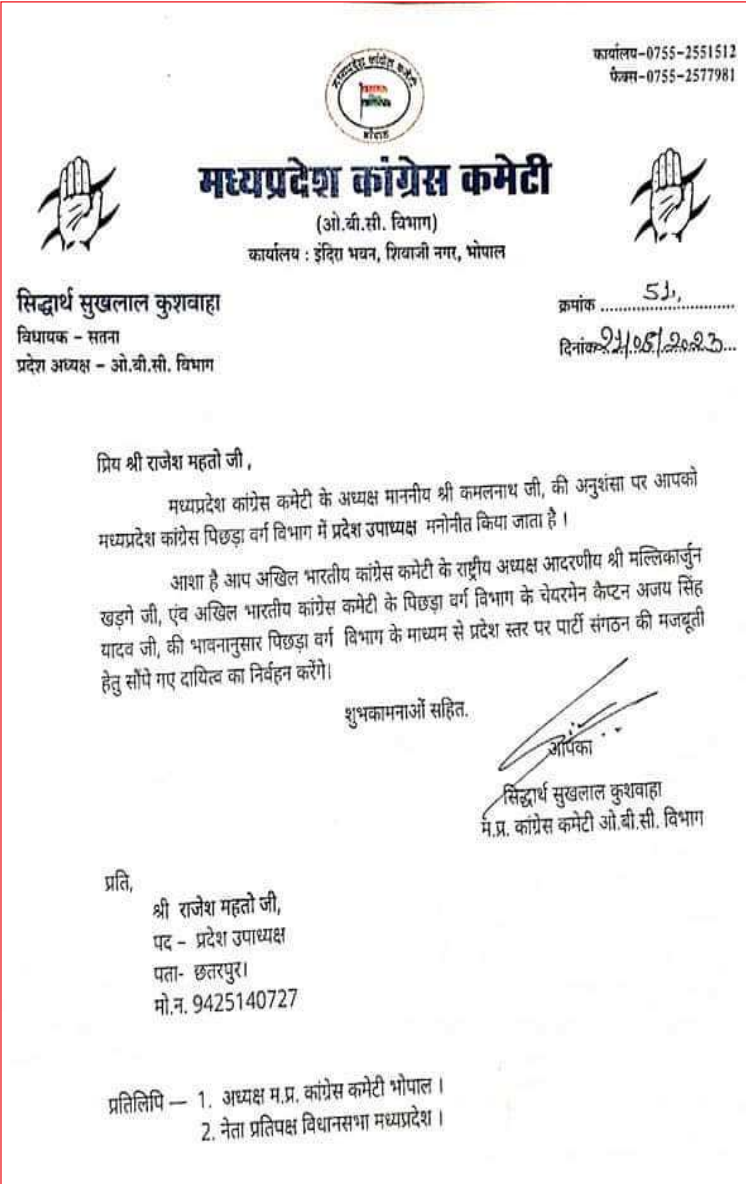 कार्यालय-0755-2551512
फैक्स-0755-2577981
मध्यप्रदेश कांग्रेस कमेटी
भोपाल
मध्यप्रदेश कांग्रेस कमेटी
(ओ.बी.सी. विभाग)
कार्यालय : इंदिरा भवन, शिवाजी नगर, भोपाल
सिद्धार्थ सुखलाल कुशवाहा
विधायक - सतना
प्रदेश अध्यक्ष - ओ.बी.सी. विभाग
क्रमांक .....51,.....
दिनांक 21/05/2023...
प्रिय श्री राजेश महतो जी ,
मध्यप्रदेश कांग्रेस कमेटी के अध्यक्ष माननीय श्री कमलनाथ जी, की अनुशंसा पर आपको
मध्यप्रदेश कांग्रेस पिछड़ा वर्ग विभाग में प्रदेश उपाध्यक्ष मनोनीत किया जाता है ।
आशा है आप अखिल भारतीय कांग्रेस कमेटी के राष्ट्रीय अध्यक्ष आदरणीय श्री मल्लिकार्जुन
खड़गे जी, एंव अखिल भारतीय कांग्रेस कमेटी के पिछड़ा वर्ग विभाग के चेयरमेन कैप्टन अजय सिंह
यादव जी, की भावनानुसार पिछड़ा वर्ग विभाग के माध्यम से प्रदेश स्तर पर पार्टी संगठन की मजबूती
हेतु सौंपे गए दायित्व का निर्वहन करेंगे।
शुभकामनाओं सहित.
आपका
सिद्धार्थ सुखलाल कुशवाहा
म.प्र. कांग्रेस कमेटी ओ.बी.सी. विभाग
प्रति,
श्री राजेश महतो जी,
पद – प्रदेश उपाध्यक्ष
पता- छतरपुर।
मो.न. 9425140727
प्रतिलिपि — 1. अध्यक्ष म.प्र. कांग्रेस कमेटी भोपाल ।
2. नेता प्रतिपक्ष विधानसभा मध्यप्रदेश ।